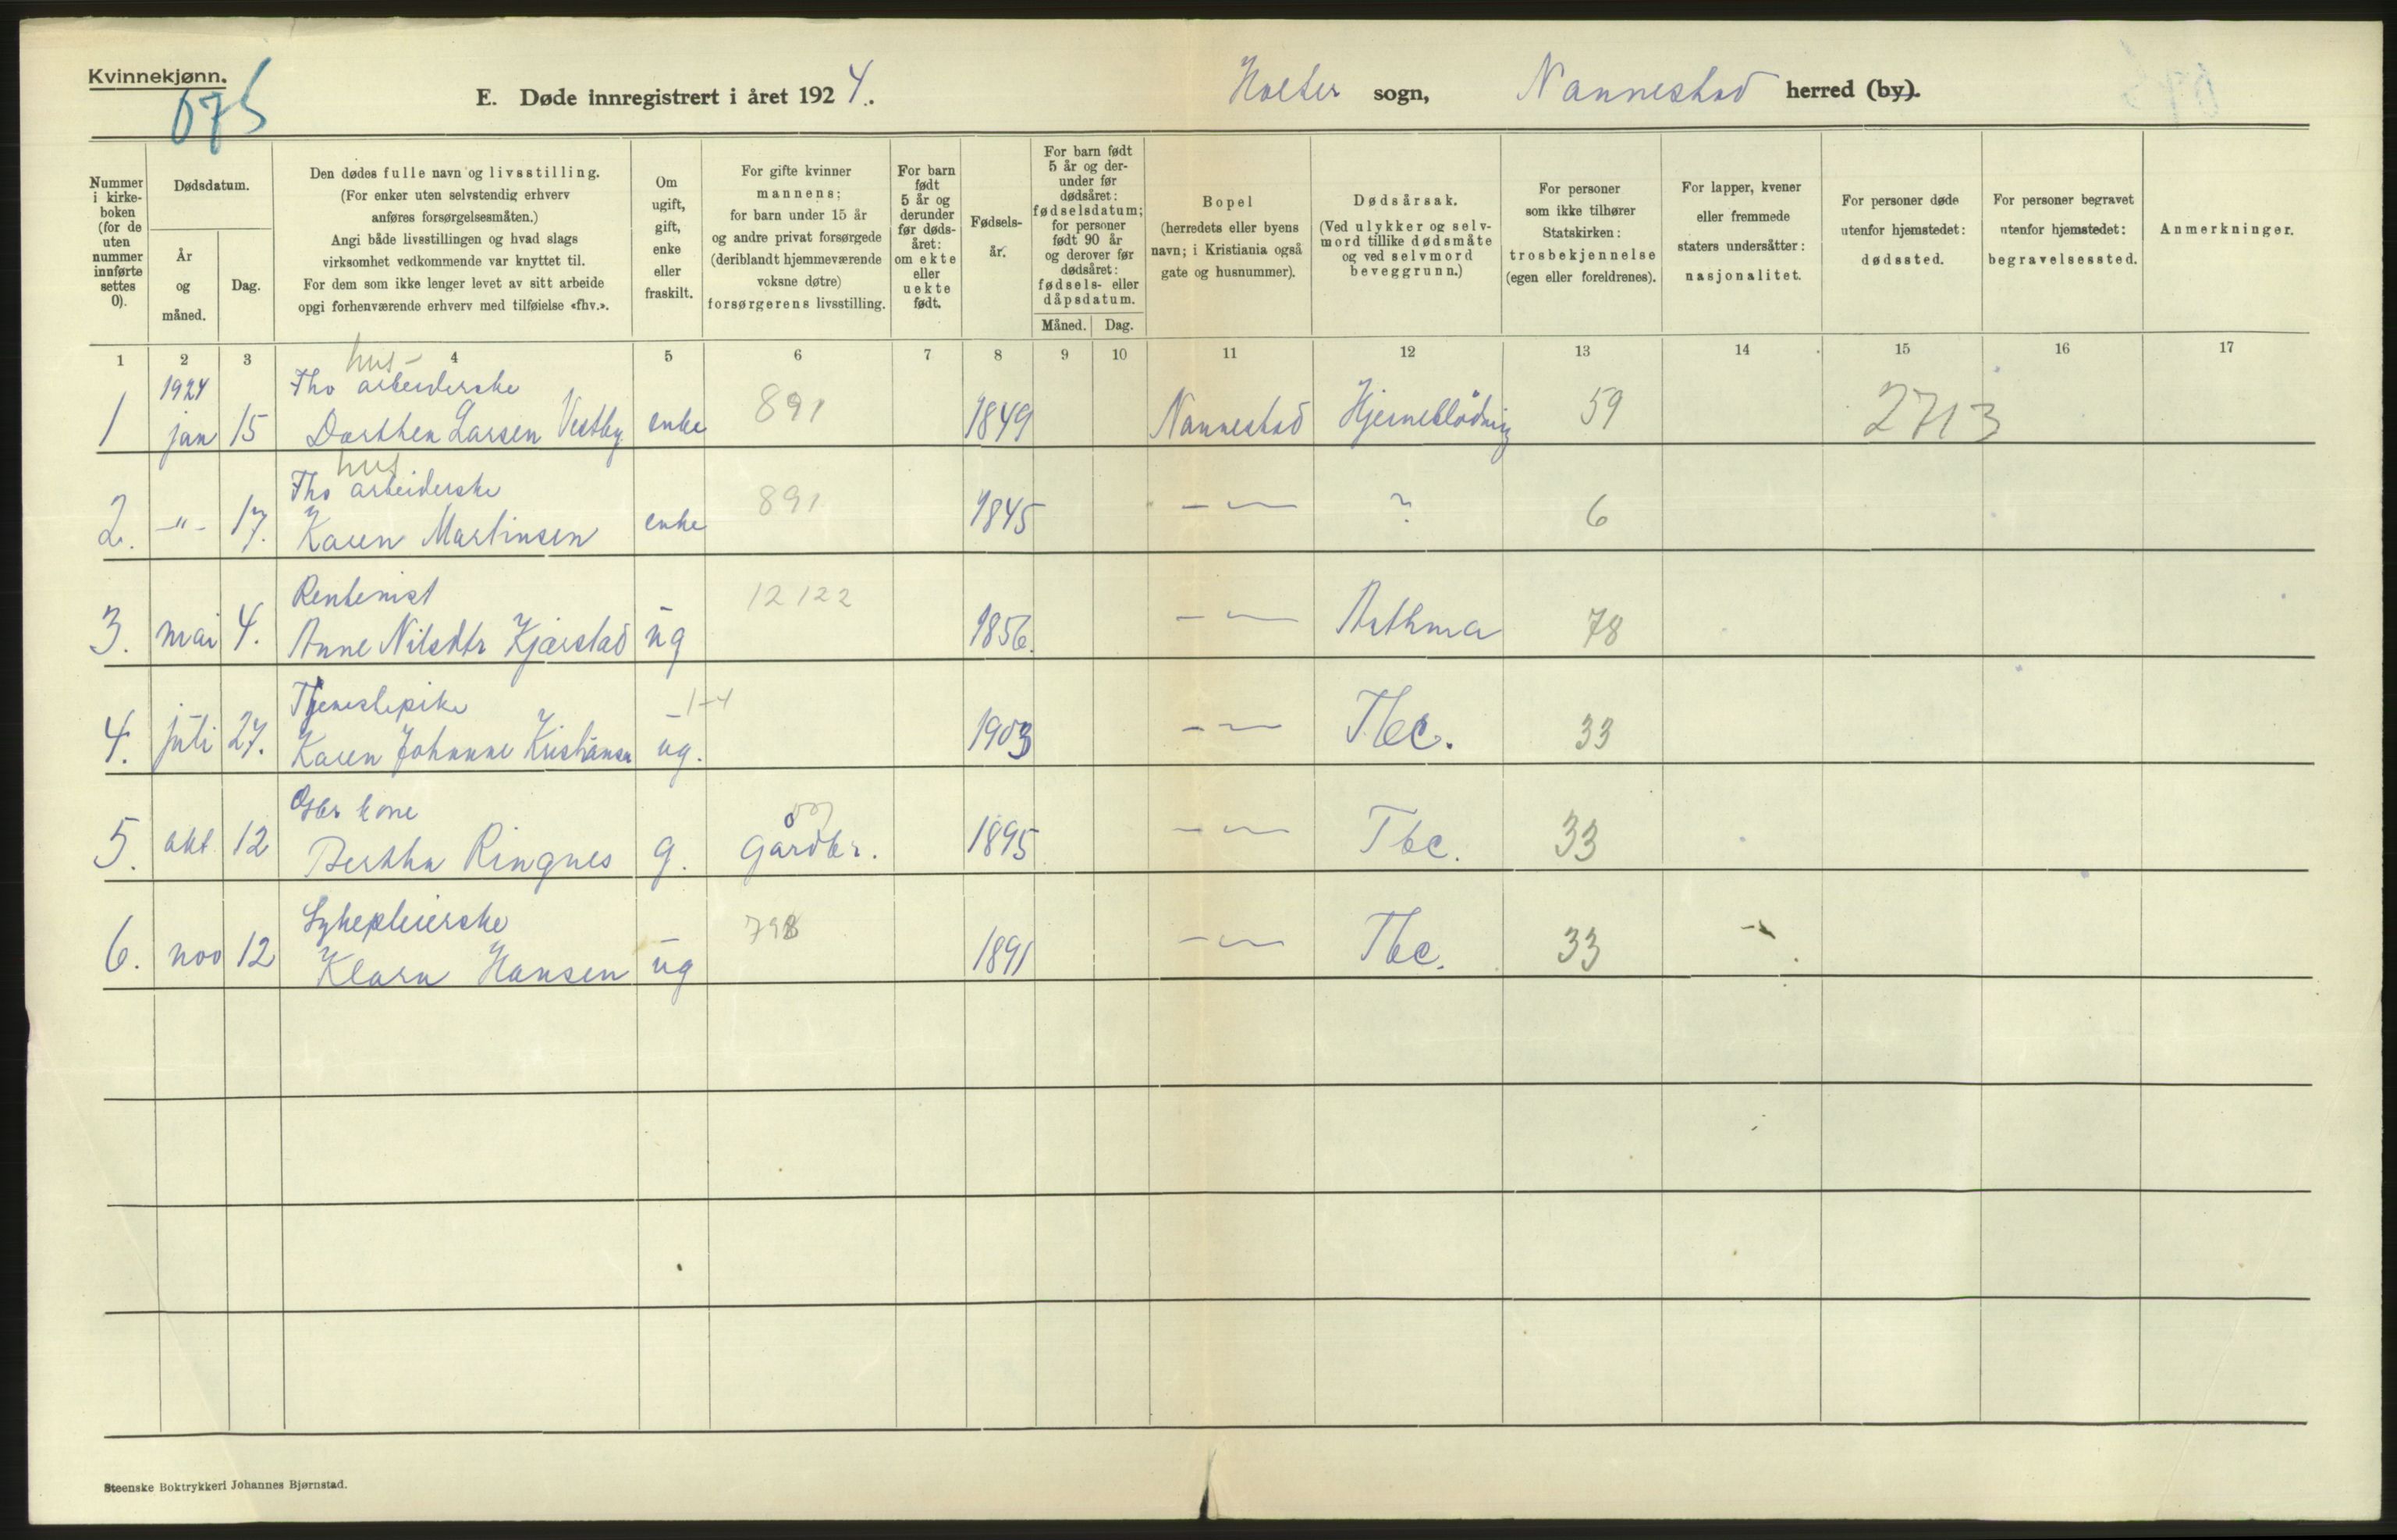 Kvinnekjønn.
675
E. Døde innregistrert i året 1924.
Holter sogn, Nannestad herred (by).
Nummer i kirke-boken (for de uten nummer innførte settes 0).
Dødsdatum.
År og måned.
Dag.
Den dødes fulle navn og livsstilling.
(For enker uten selvstendig erhverv
anføres forsørgelsesmåten.)
Angi både livsstillingen og hvad slags
virksomhet vedkommende var knyttet til.
For dem som ikke lenger levet av sitt arbeide
opgi forhenværende erhverv med tilføielse «fhv.».
Om ugift, gift, enke eller fraskilt.
For gifte kvinner
mannens;
for barn under 15 år
og andre privat forsørgede
(deriblandt hjemmeværende
voksne døtre)
forsørgerens livsstilling.
For barn født 5 år og derunder før døds-året: om ekte eller uekte født.
Fødsels-år.
For barn født 5 år og der-under før dødsåret: fødselsdatum; for personer født 90 år og derover før dødsåret: fødsels- eller dåpsdatum.
Måned. Dag.
Bopel
(herredets eller byens
navn; i Kristiania også
gate og husnummer).
Dødsårsak.
(Ved ulykker og selv-
mord tillike dødsmåte
og ved selvmord
beveggrunn.)
For personer
som ikke tilhører
Statskirken:
trosbekjennelse
(egen eller foreldrenes).
For lapper, kvener
eller fremmede
staters undersåtter:
nasjonalitet.
For personer døde
utenfor hjemstedet:
dødssted.
For personer begravet
utenfor hjemstedet:
begravelsessted.
Anmerkninger.
1 2 3 4 5 6 7 8 9 10 11 12 13 14 15 16 17
hus-
1924 Fhv arbeiderske
1 jan 15 Dorthea Larsen Vestby enke 891 1849 Nannestad Hjerneblødning 59 2713
hus
Fhv arbeiderske
2. -"- 17. Karen Martinsen enke 891 1845 - - ? 6
Rentenist
3. mai 4. Anne Nilsdtr Kjærstad ug 12122 1856. - - Asthma 78
Tjenestepike
4. juli 27. Karen Johanne Kristiansen ug. 1903 - - Tbc. 33
Gbr kone
5. okt. 12 Bertha Ringnes g. Gårdbr. 1895 - - Tbc. 33
Sykepleierske
6. nov 12 Klara Hansen ug 798 1891 - - Tbc. 33
Steenske Boktrykkeri Johannes Bjørnstad.